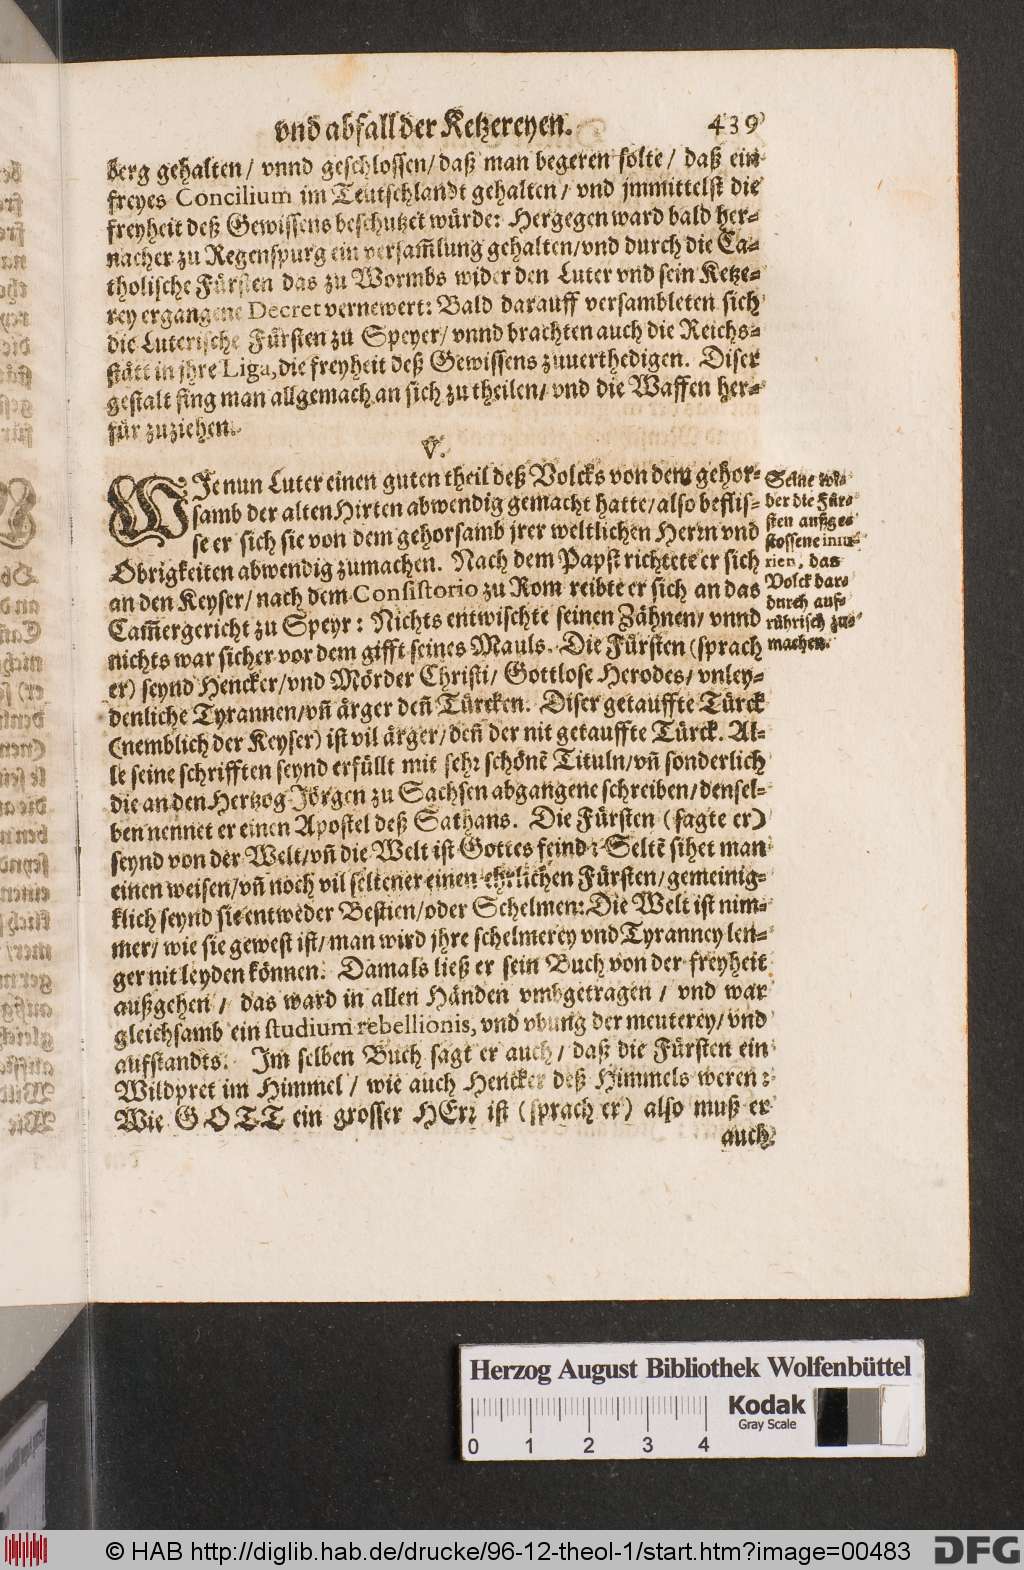 vnd abfall der Ketzereyen. 439
berg gehalten / vnnd geschlossen / daß man begeren solte / daß ein
freyes Concilium im Teutschlandt gehalten / vnd jmmittelst die
freyheit deß Gewissens beschutzet würde: Hergegen ward bald her-
nacher zu Regenspurg ein versam̃lung gehalten / vnd durch die Ca-
tholische Fürsten das zu Wormbs wider den Luter vnd sein Ketze-
rey ergangene Decret vernewert: Bald darauff versambleten sich
die Luterische Fürsten zu Speyer / vnnd brachten auch die Reichs-
stätt in jhre Liga, die freyheit deß Gewissens zuuerthedigen. Diser
gestalt fing man allgemach an sich zu theilen / vnd die Waffen her-
für zuziehen.
V.
WJe nun Luter einen guten theil deß Volcks von dem gehor-
samb der alten Hirten abwendig gemacht hatte / also beflis-
se er sich sie von dem gehorsamb jrer weltlichen Herrn vnd
Obrigkeiten abwendig zumachen. Nach dem Papst richtete er sich
an den Keyser / nach dem Consistorio zu Rom reibte er sich an das
Cam̃ergericht zu Speyr: Nichts entwischte seinen Zähnen / vnnd
nichts war sicher vor dem gifft seines Mauls. Die Fürsten (sprach
er) seynd Hencker / vnd Mörder Christi / Gottlose Herodes / vnley-
denliche Tyrannen / vñ ärger deñ Türcken. Diser getauffte Türck
(nemblich der Keyser) ist vil ärger / deñ der nit getauffte Türck. Al-
le seine schrifften seynd erfüllt mit sehr schönẽ Tituln / vñ sonderlich
die an den Hertzog Jörgen zu Sachsen abgangene schreiben / densel-
ben nennet er einen Apostel deß Sathans. Die Fürsten (sagte er)
seynd von der Welt / vñ die Welt ist Gottes feind: Seltẽ sihet man
einen weisen / vñ noch vil seltener einen ehrlichen Fürsten / gemeinig-
klich seynd sie entweder Bestien / oder Schelmen: Die Welt ist nim-
mer / wie sie gewest ist / man wird jhre schelmerey vnd Tyranney len-
ger nit leyden können. Damals ließ er sein Buch von der freyheit
außgehen / das ward in allen Händen vmbgetragen / vnd war
gleichsamb ein studium rebellionis, vnd vbung der meuterey / vnd
aufstandts. Jm selben Buch sagt er auch / daß die Fürsten ein
Wildpret im Himmel / wie auch Hencker deß Himmels weren:
Wie GOTT ein grosser HErr ist (sprach er) also muß er
auch
Seine wi-
ber die Für-
sten außge-
stossene iniu-
rien, das
Volck dar-
durch auf-
rührisch zu-
machen.
Herzog August Bibliothek Wolfenbüttel
Kodak
Gray Scale
0 1 2 3 4
© HAB http://diglib.hab.de/drucke/96-12-theol-1/start.htm?image=00483
DFG